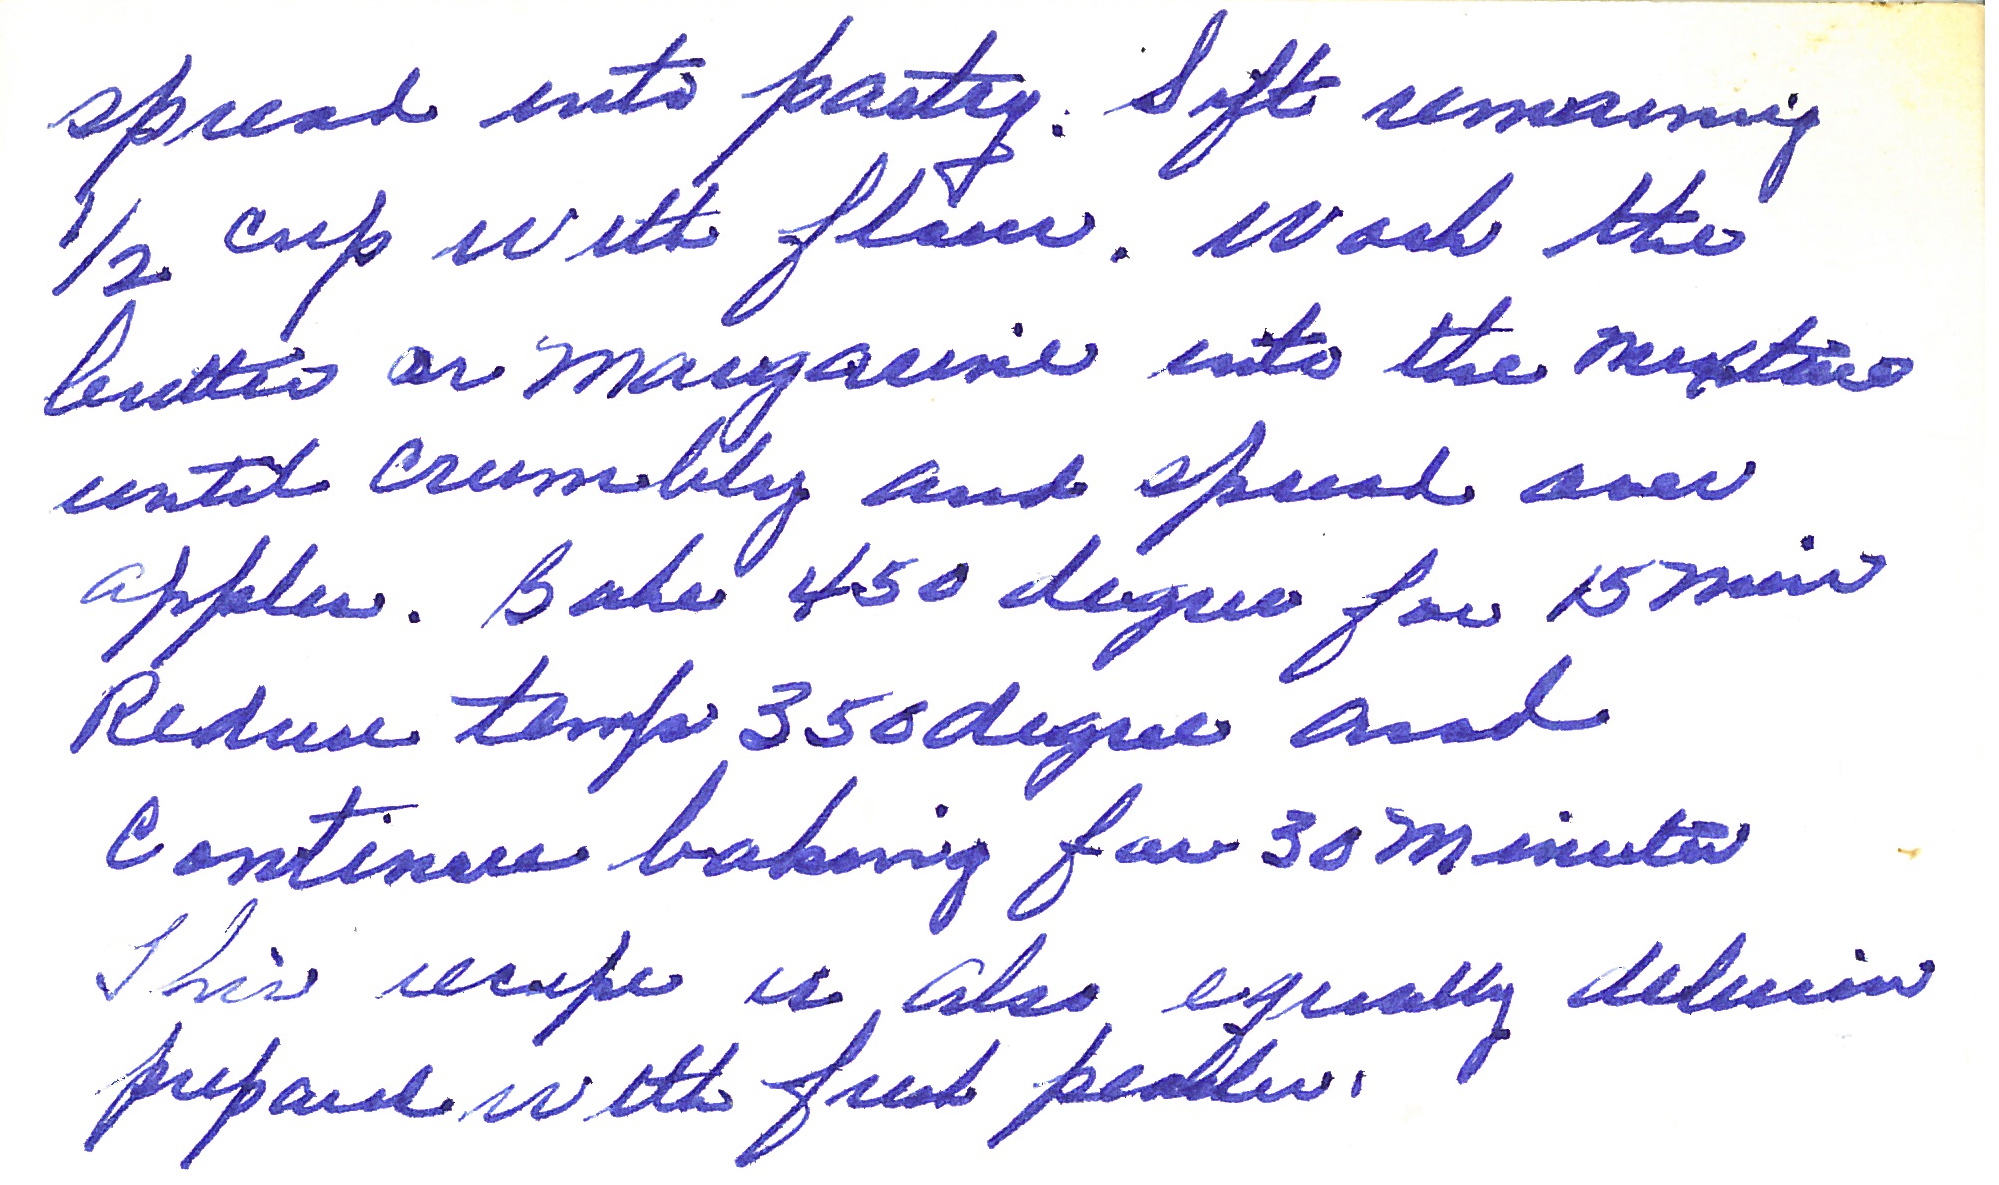 spread into pastry. Sift remaining
1/2 cup with flour. Work the
butter or Margarine into the mixture
until crumbly and spread over
apples. Bake 450 degree for 15 min
Reduce temp 350 degree and
Continue baking for 30 Minutes
This recipe is also equally delicious
prepared with fresh peaches.